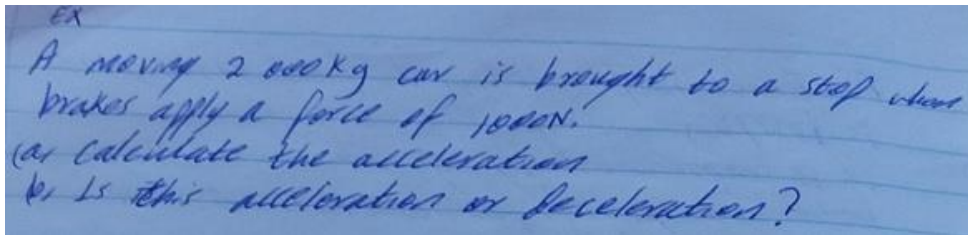 EX
A moving 2 000kg car is brought to a stop when
brakes apply a force of 1000N.
(a, calculate the acceleration
b, Is this acceleration or deceleration?